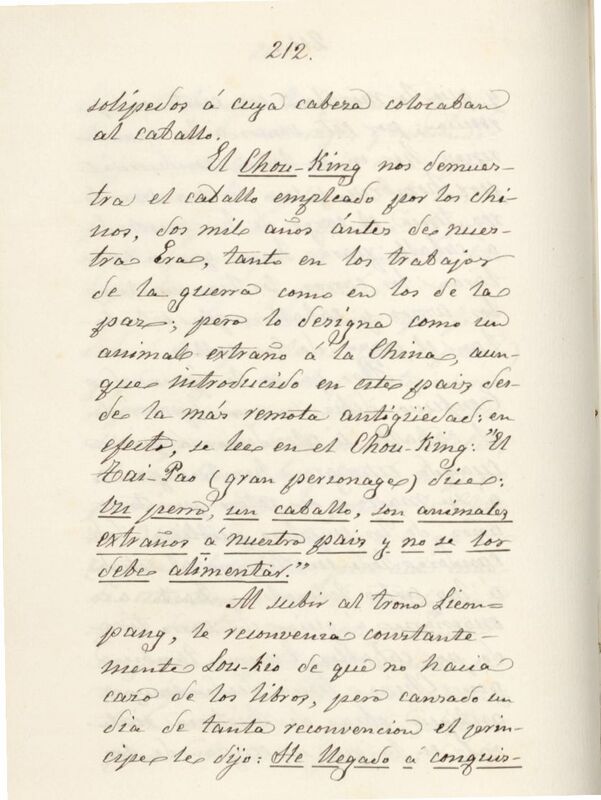 212.
solípedos á cuya cabeza colocaban
al caballo.
El Chou-King nos demues-
tra el caballo empleado por los chi-
nos, dos mil años ántes de nues-
tra Era, tanto en los trabajos
de la guerra como en los de la
paz; pero lo designa como un
animal extraño á la China, aun-
que introducido en este pais des-
de la más remota antigüedad: en
efecto, se lee en el Chou-King: "El
Tai-Pao (gran personage) dice:
Un perro, un caballo, son animales
extraños á nuestro pais y no se los
debe alimentar."
Al subir al trono Lieou-
pang, le reconvenia constante-
mente Lou-kio de que no hacia
caso de los libros, pero cansado un
dia de tanta reconvencion el prin-
cipe le dijo: He llegado á conquis-